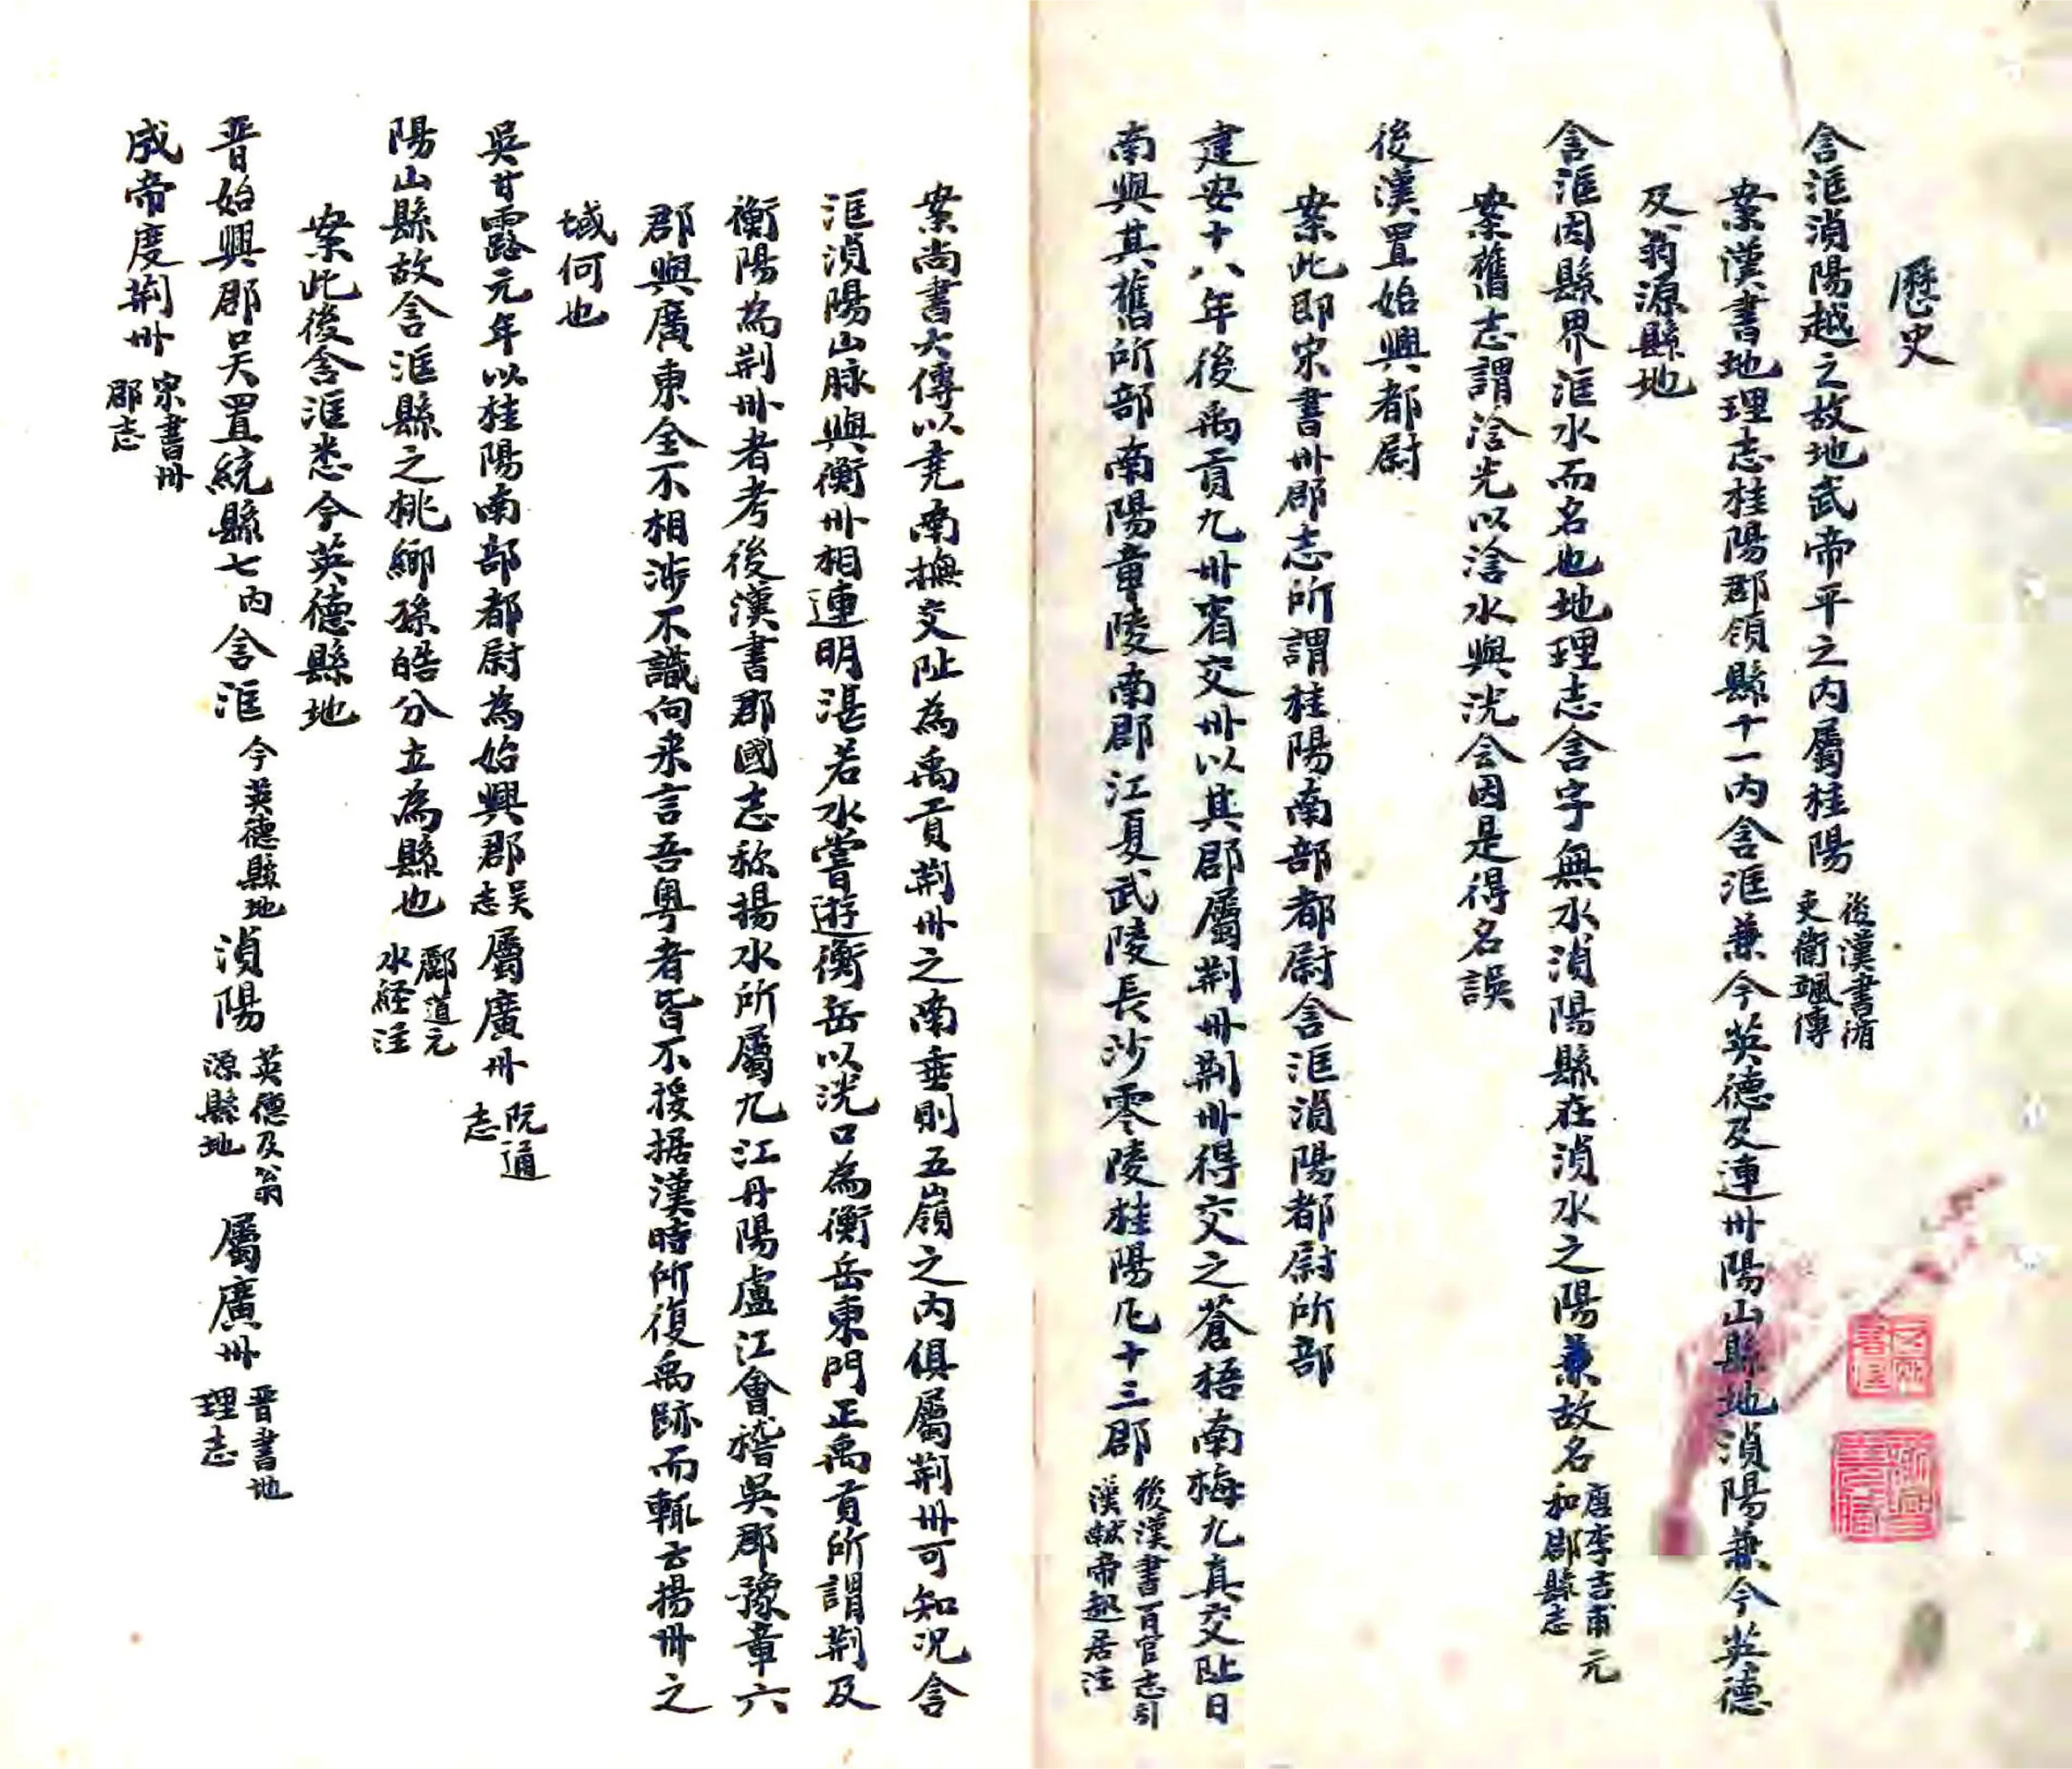 歷史
含洭湞陽越之故地武帝平之內屬桂陽後漢書循吏衞颯傳
案漢書地理志桂陽郡領縣十一內含洭兼今英德及連卅陽山縣地湞陽兼今英德
及翁源縣地
含洭因縣界洭水而名也地理志含字無水湞陽縣在湞水之陽兼故名唐李吉甫元和郡縣志
案舊志謂浛光以浛水與洸会因是得名誤
後漢置始興都尉
案此即宋書卅郡志所謂桂陽南部都尉含洭湞陽都尉所部
建安十八年後禹貢九卅省交卅以其郡屬荆卅荆卅得交之蒼梧南梅九真交阯日
南與其舊所部南陽章陵南郡江夏武陵長沙零陵桂陽凡十三郡後漢書百官志引漢獻帝起居注
案尚書大傳以堯南撫交阯為禹貢荆卅之南垂則五嶺之內俱屬荆卅可知况含
洭湞陽山脉與衡卅相連明湛若水嘗遊衡岳以洸口為衡岳東門正禹貢所謂荆及
衡陽為荆卅者考後漢書郡國志称揚水所屬九江丹陽盧江會稽吳郡豫章六
郡與廣東全不相涉不識向来言吾粤者皆不援据漢時所復禹跡而輒云揚卅之
域何也
吳甘露元年以桂陽南部都尉為始興郡吴志屬廣卅阮通志
陽山縣故含洭縣之桃鄉孫皓分立為縣也酈道元水経注
案此後含洭悉今英德縣地
晋始興郡吴置統縣七內含洭今英德縣地湞陽英德及翁源縣地屬廣卅晋書地理志
成帝度荆卅宋書卅郡志